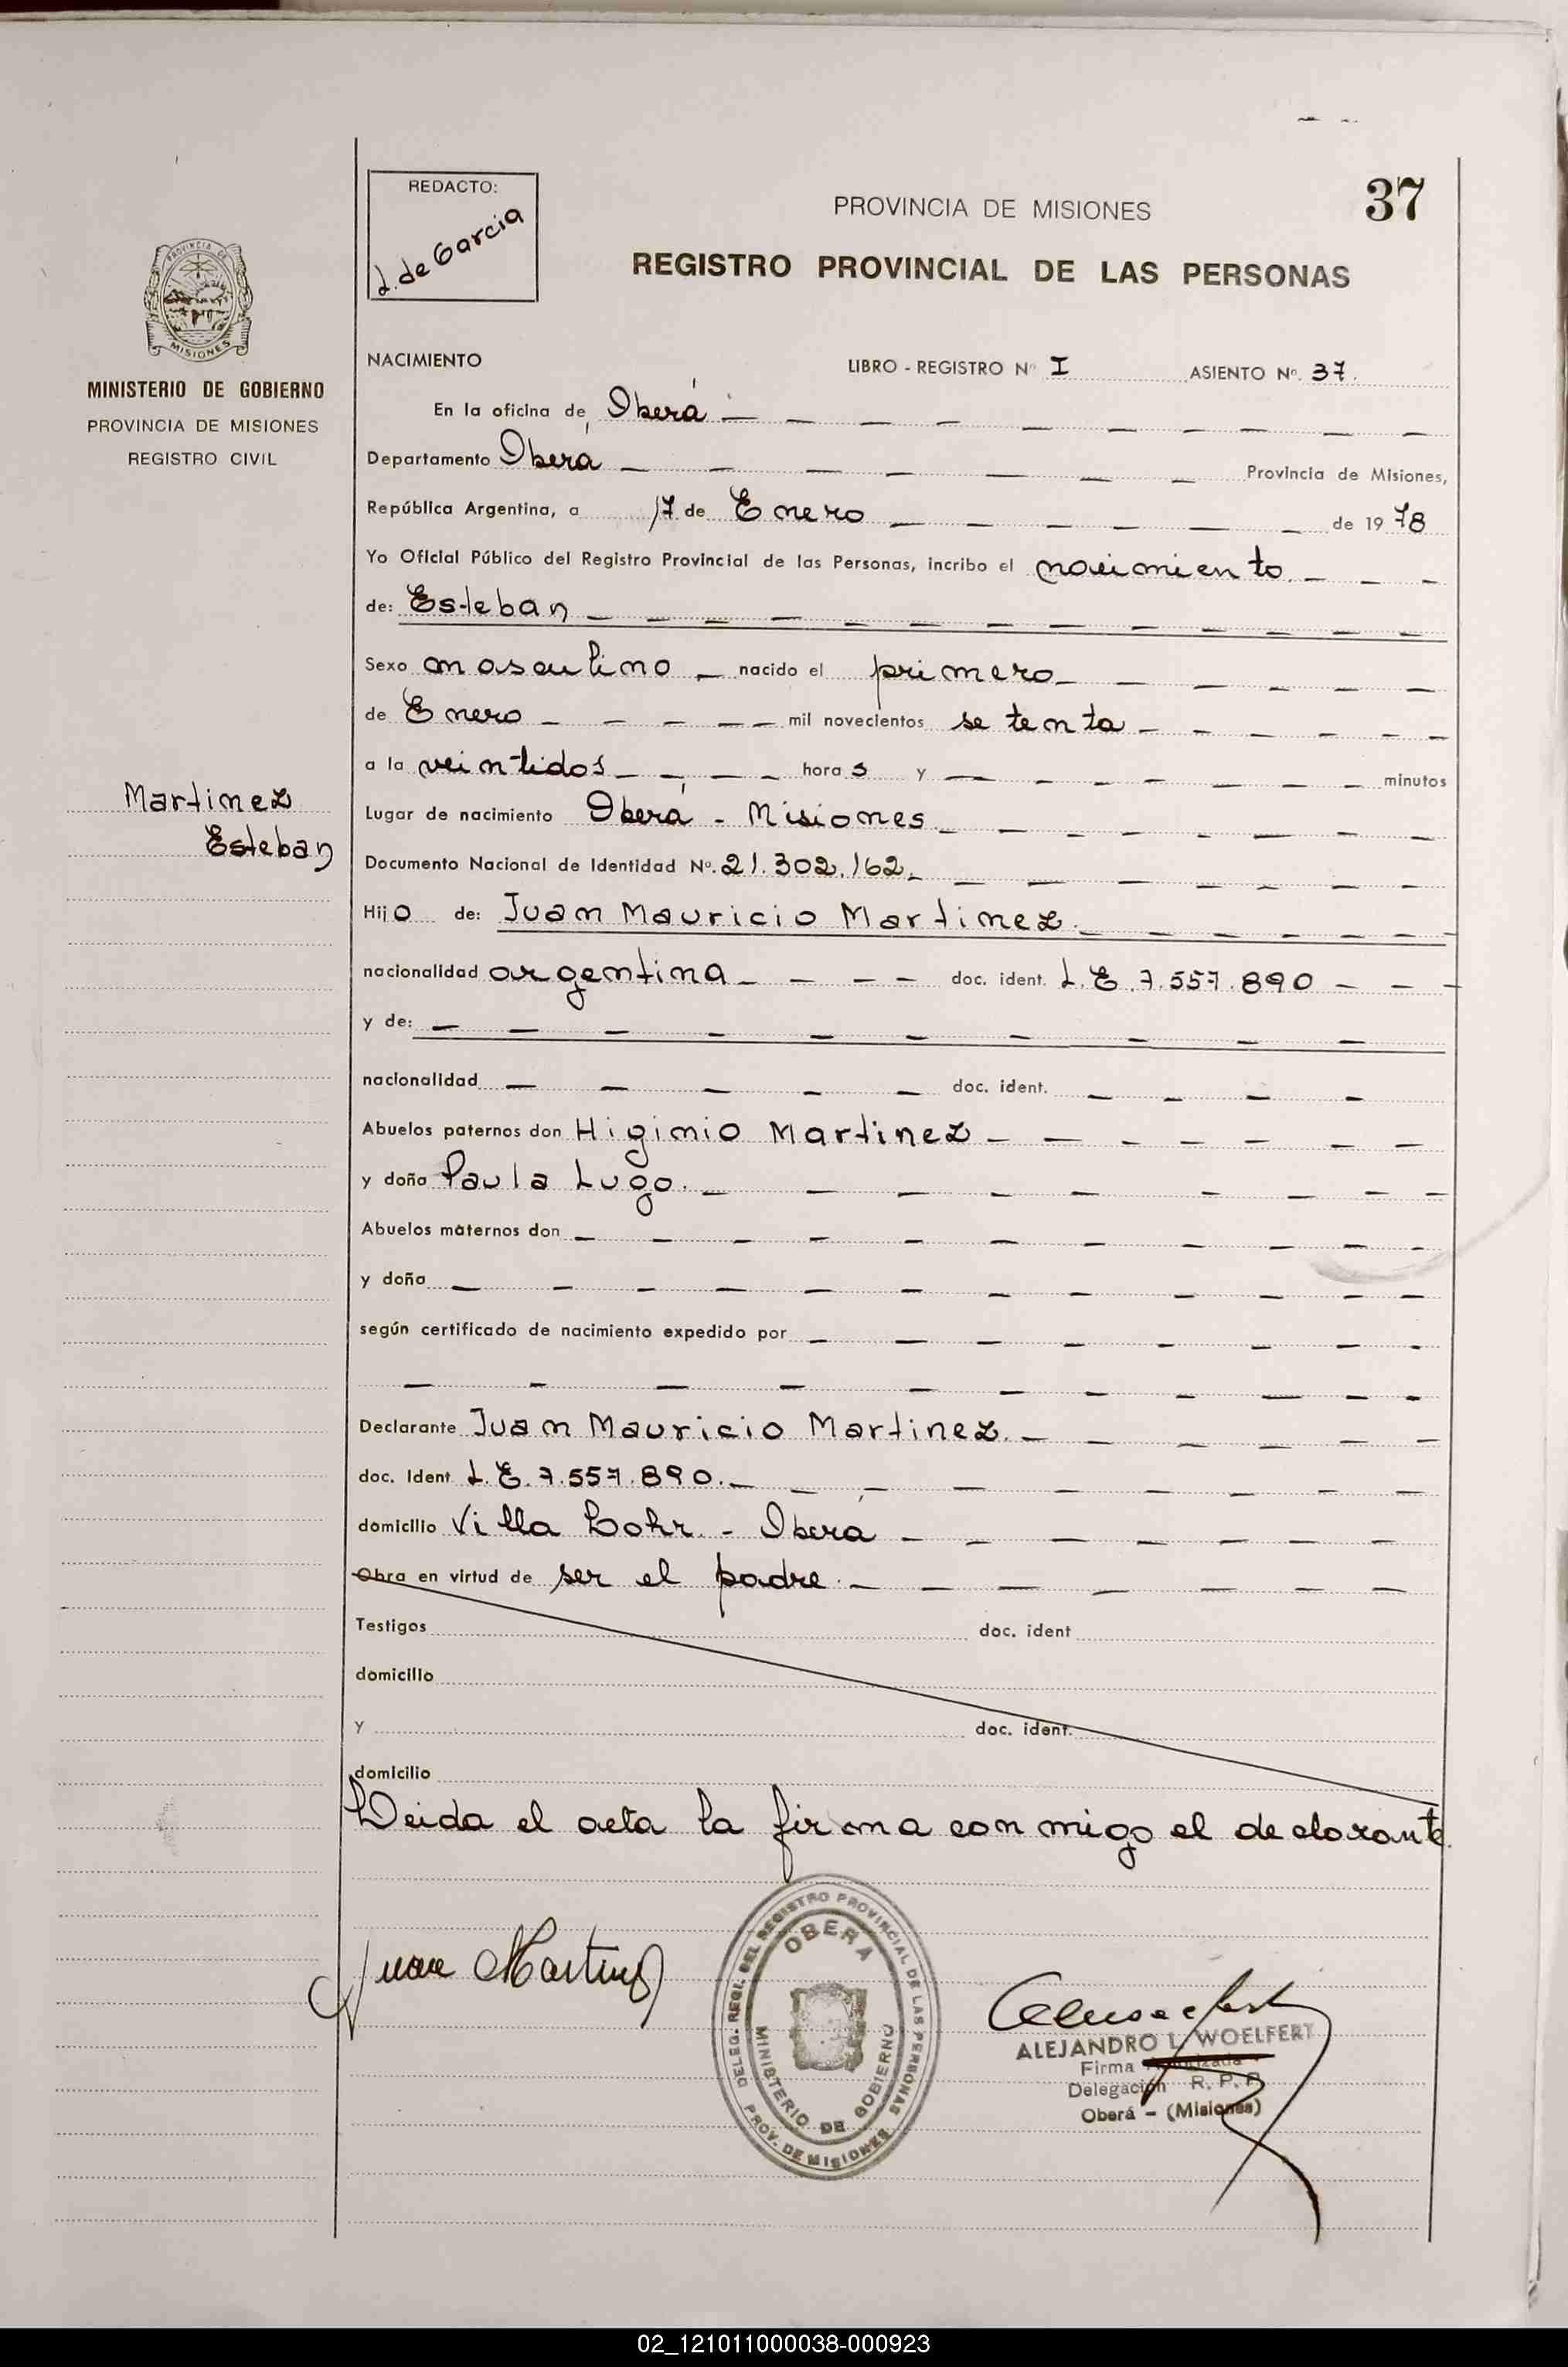 REDACTO:
L. de Garcia
PROVINCIA DE MISIONES
37
REGISTRO PROVINCIAL DE LAS PERSONAS
PROVINCIA DE
MISIONES
MINISTERIO DE GOBIERNO
PROVINCIA DE MISIONES
REGISTRO CIVIL
NACIMIENTO LIBRO - REGISTRO Nº I ASIENTO Nº. 37.
En la oficina de Oberá
Departamento Oberá Provincia de Misiones,
República Argentina, a 17 de Enero de 1978
Yo Oficial Público del Registro Provincial de las Personas, incribo el nacimiento
de: Esteban
Sexo masculino nacido el primero
de Enero mil novecientos setenta
a la veintidos horas y minutos
Martinez
Esteban
Lugar de nacimiento Oberá - Misiones
Documento Nacional de Identidad Nº. 21.302.162
Hijo de: Juan Mauricio Martinez
nacionalidad argentina doc. ident. L.E. 7.557.890
y de:
nacionalidad doc. ident.
Abuelos paternos don Higinio Martinez
y doña Paula Lugo.
Abuelos maternos don
y doña
según certificado de nacimiento expedido por
Declarante Juan Mauricio Martinez.
doc. Ident L.E. 7.557.890.
domicilio Villa Lohr. - Oberá
Obra en virtud de ser el padre.
Testigos doc. ident
domicilio
Y doc. ident.
domicilio
Leida el acta la firma conmigo el declarante.
Juan Martinez
DELEG. REGI. DEL REGISTRO PROVINCIAL DE LAS PERSONAS
OBERA
MINISTERIO DE GOBIERNO
PROV. DE MISIONES
ALEJANDRO L. WOELFERT
Firma Autorizada
Delegación R. P. P.
Oberá - (Misiones)
02_121011000038-000923